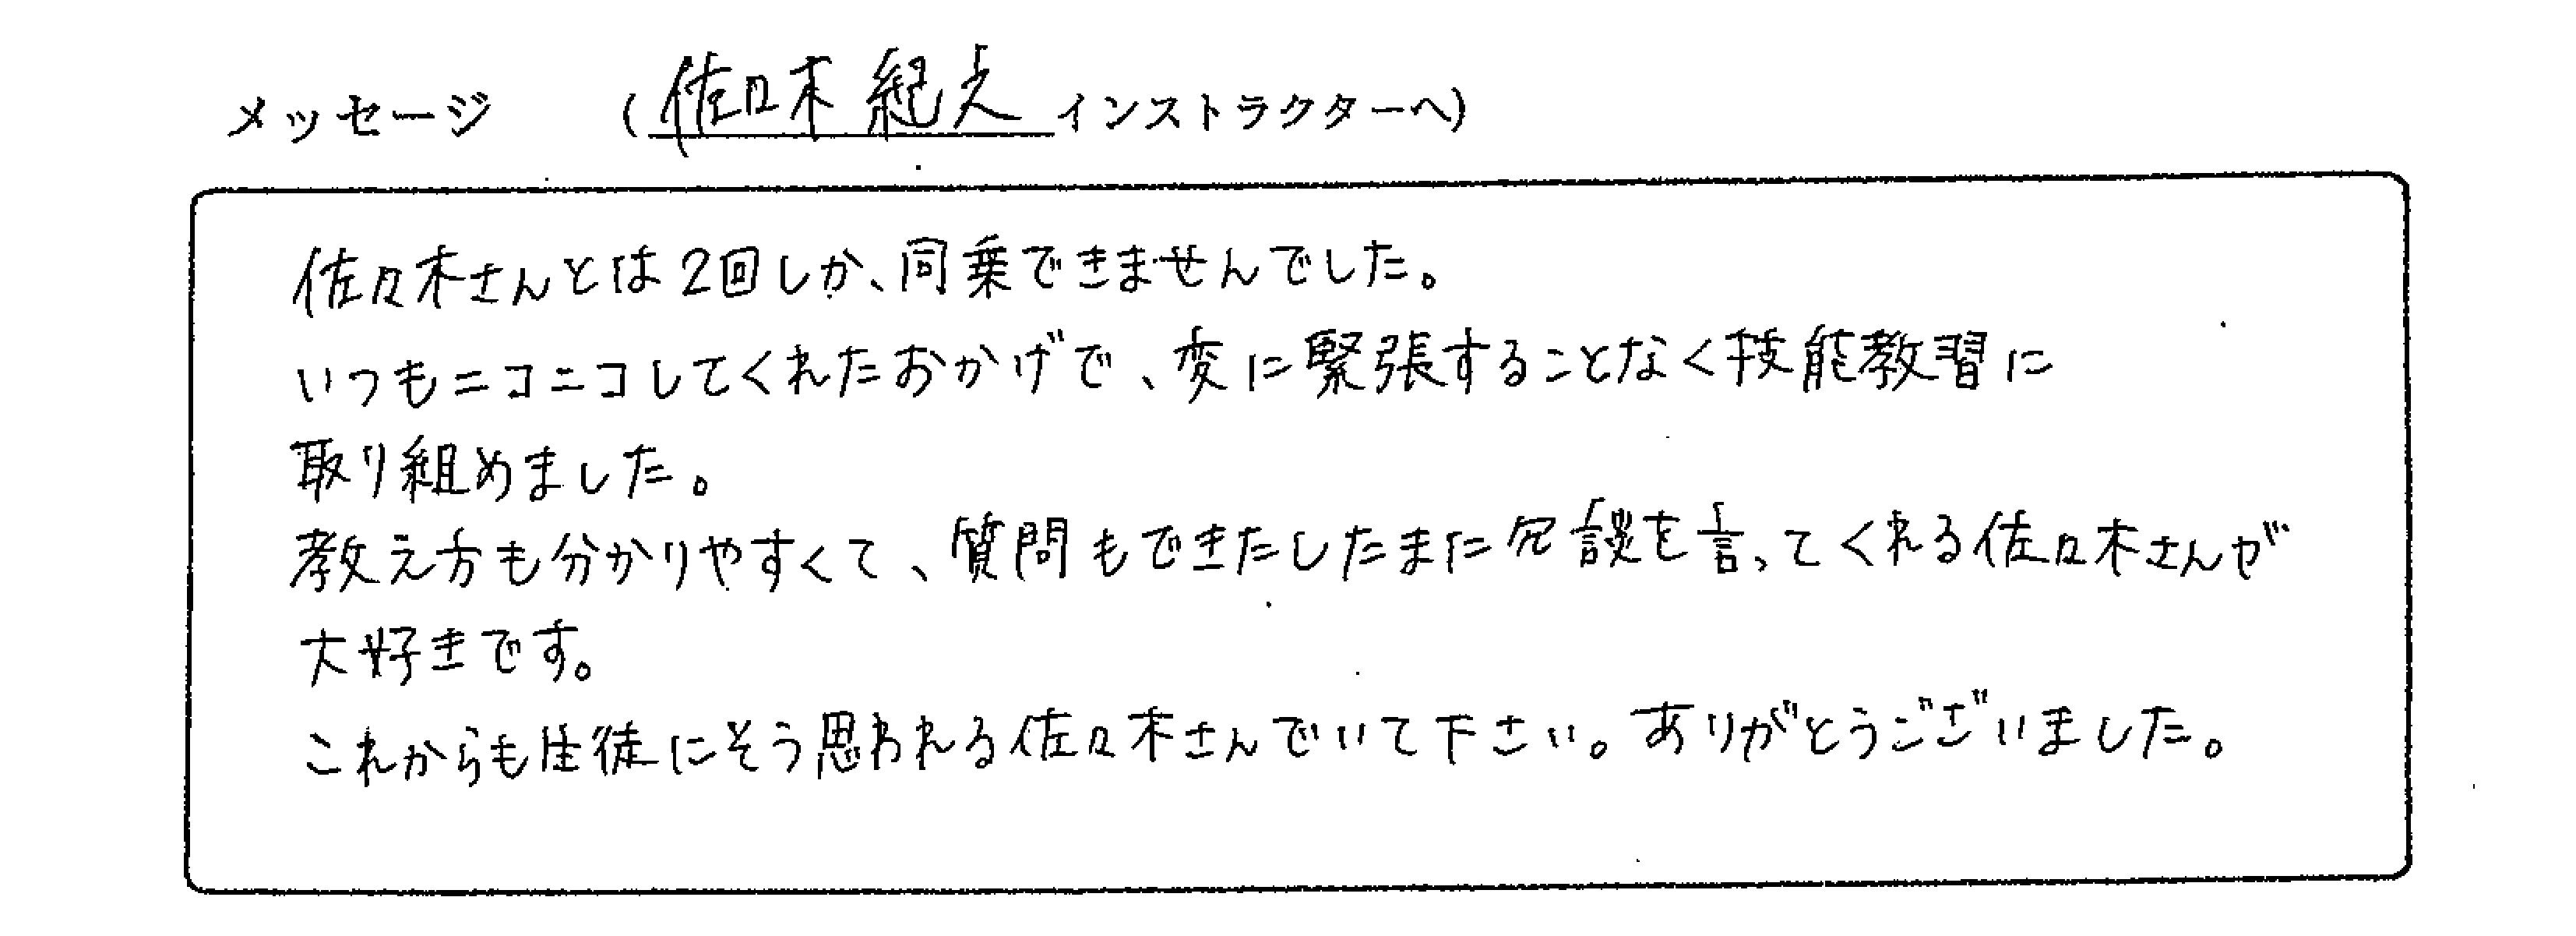 メッセージ (佐々木 紀夫 インストラクターへ)
佐々木さんとは2回しか、同乗できませんでした。
いつもニコニコしてくれたおかげで、変に緊張することなく技能教習に
取り組めました。
教え方も分かりやすくて、質問もできたしたまに冗談を言ってくれる佐々木さんが
大好きです。
これからも生徒にそう思われる佐々木さんでいて下さい。ありがとうございました。